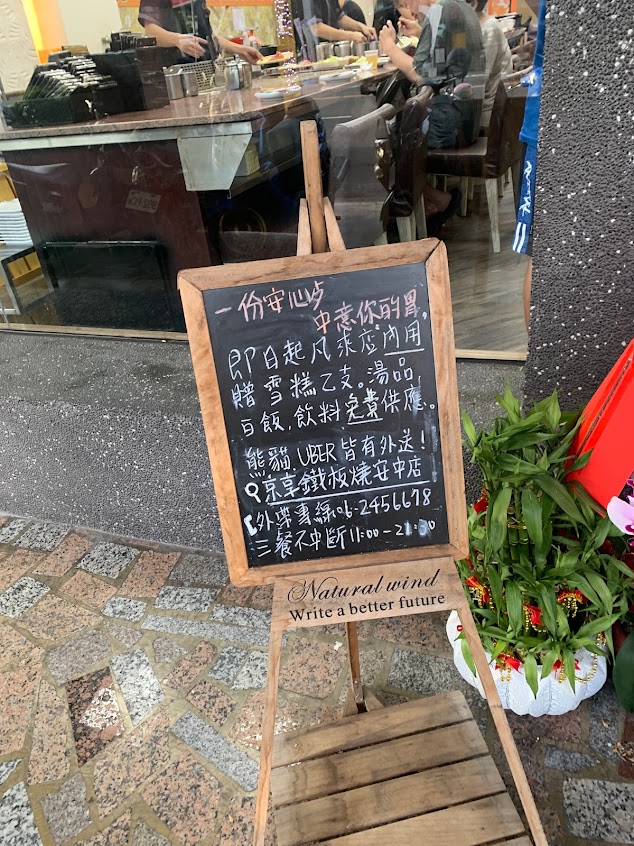 一份安心少
中意你的胃,
即日起凡來店內用
贈雪糕乙支。湯品
白飯,飲料免費供應。
熊貓.UBER皆有外送!
京享鐵板燒安中店
外帶專線:06-2456678
三餐不中斷11:00-21:30
Natural wind
Write a better future